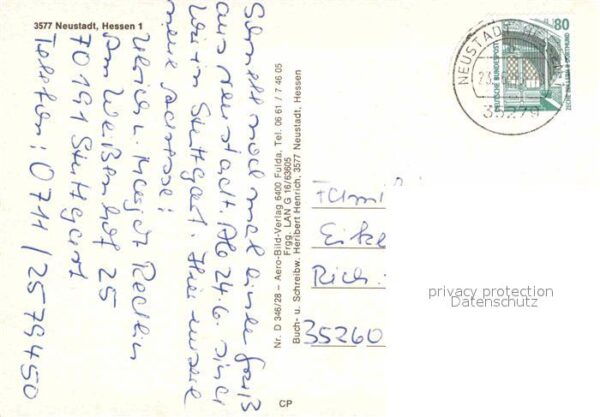 3577 Neustadt, Hessen 1
Schnell noch mal einen Gruß
aus Neustadt. Ab 24.6. sind
wir in Stuttgart. Hier unsere
neue Adresse:
Ulrich u.
Am Weißenhof 25
70191 Stuttgart
Telefon: 0711/2579450
Nr. D 346/28 – Aero-Bild-Verlag 6400 Fulda, Tel. 06 61 / 7 46 05
Frgg. LAN G 16/63605
Buch- u. Schreibw. Heribert Henrich, 3577 Neustadt, Hessen
CP
80
DEUTSCHE BUNDESPOST
ZECHE ZOLLERN II DORTMUND
NEUSTADT, HESSEN
35279
Fami
Eike
Rich
35260
privacy protection
Datenschutz